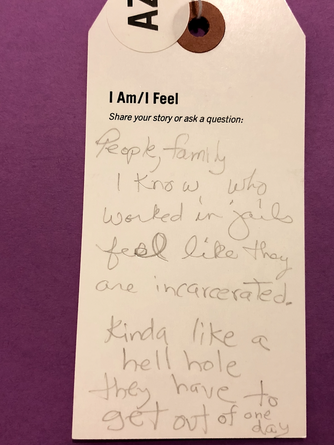 AZ
I Am/I Feel
Share your story or ask a question:
People, family
I know who
worked in jails
feel like they
are incarcerated.
Kinda like a
hell hole
they have to
get out of one
day